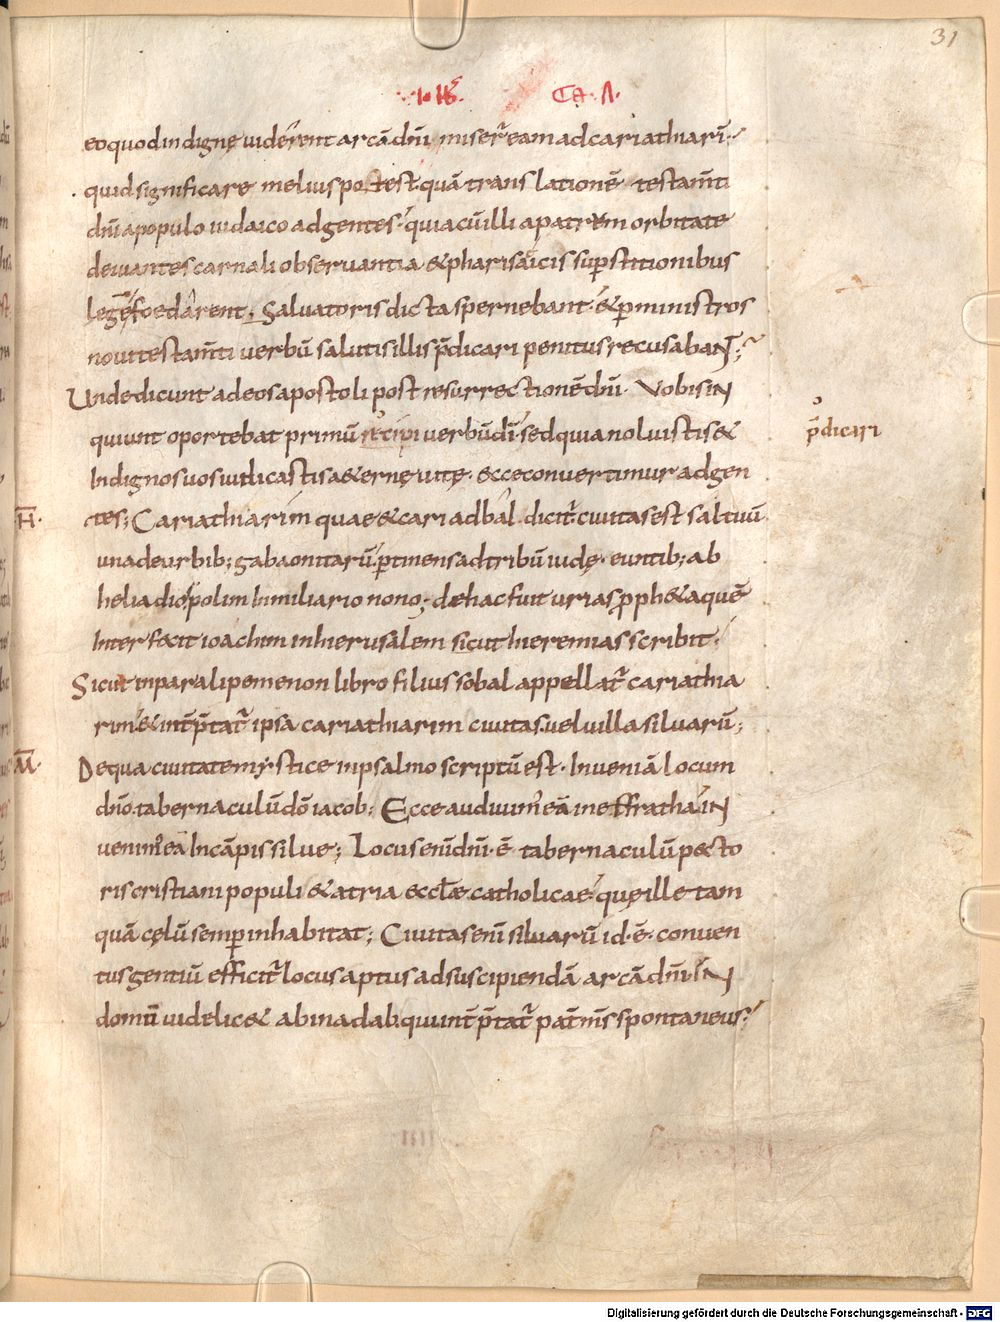 31
eo quod indigne uiderent arcā dn̄i miser̄ eam ad cariathiarī
quid significare melius potest quā translationē testam̄ti
dn̄i a populo iudaico ad gentes quia cū illi a patrem orbitate
deuiantes carnali obseruantia & pharisaicis suꝑstitionibus
legē foedarent. Saluatoris dicta spernebant & ꝑ ministros
noui testam̄ti uerbū salutis illis p̄dicari penitus recusabaNT;
Unde dicunt ad eos apostoli post resurrectionē dn̄i. Vobis IN
quiunt oportebat primū recipi uerbū dī sed quia noluistis &
p̄dicari
Indignos uos iudicastis a&ernę uitę. Ecce conuertimur ad gen
H̄.
tes; Cariathiarim quae & cariadbal dicit̄ ciuitas est saltuū
una de urbib; gabaonitarū ꝑtinens ad tribū iudę. euntib; ab
helia diospolim In miliario nono; de hac fuit urias proph&a quē
Interfecit ioachim in hierusalem sicut hieremias scribit.
Sicut in paralipemenon libro filius sobal appellat̄ cariathia
rim & int̄p̄tat̄ ipsa cariathiarim ciuitas uel uilla siluarū;
M̄.
De qua ciuitate mystice in psalmo scriptū est. Inueniā locum
dn̄o tabernaculū dō iacob; Ecce audiuim' eā in effratha IN
uenim' eā In cāpis silue; Locus enī dn̄i. ē tabernaculū pecto
ris cristiani populi & atria eccłæ catholicae quę ille tam
quā cęlū semꝑ inhabitat; Ciuitas enī siluarū id. ē. conuen
tus gentiū efficit̄ locus aptus ad suscipiendā arcā dn̄i IN
domū uidelic& abinadab qui int̄p̄tat̄ pat̄ m̄s spontaneus
Digitalisierung gefördert durch die Deutsche Forschungsgemeinschaft - DFG